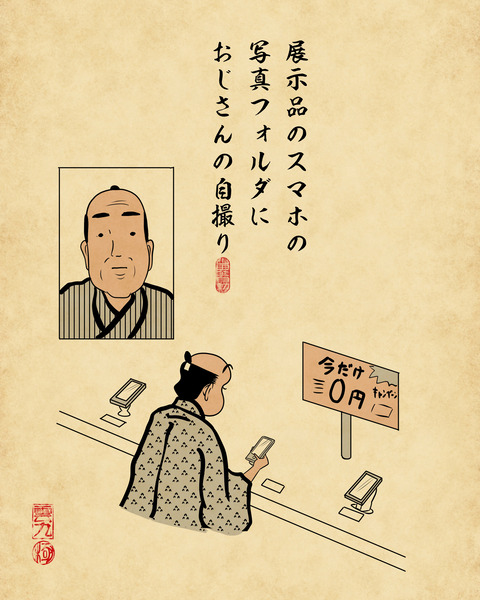 展示品のスマホの
写真フォルダに
おじさんの自撮り
今だけ
0円
キャンペーン